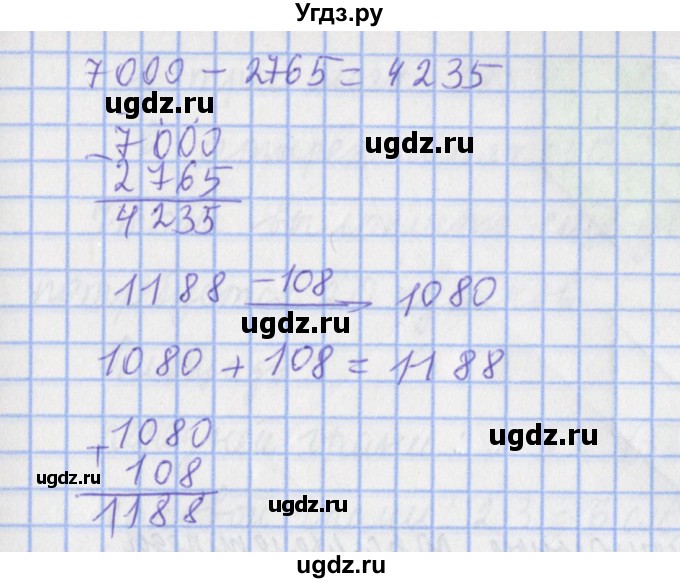 Угдз.ру
7000 - 2765 = 4235
ugdz.ru
ugdz.ru
- 7000
2765
ugdz.ru
4235
1188 -108 → 1080
ugdz.ru
1080 + 108 = 1188
+ 1080
108
ugdz.ru
ugdz.ru
1188
ugdz.ru
ugdz.ru